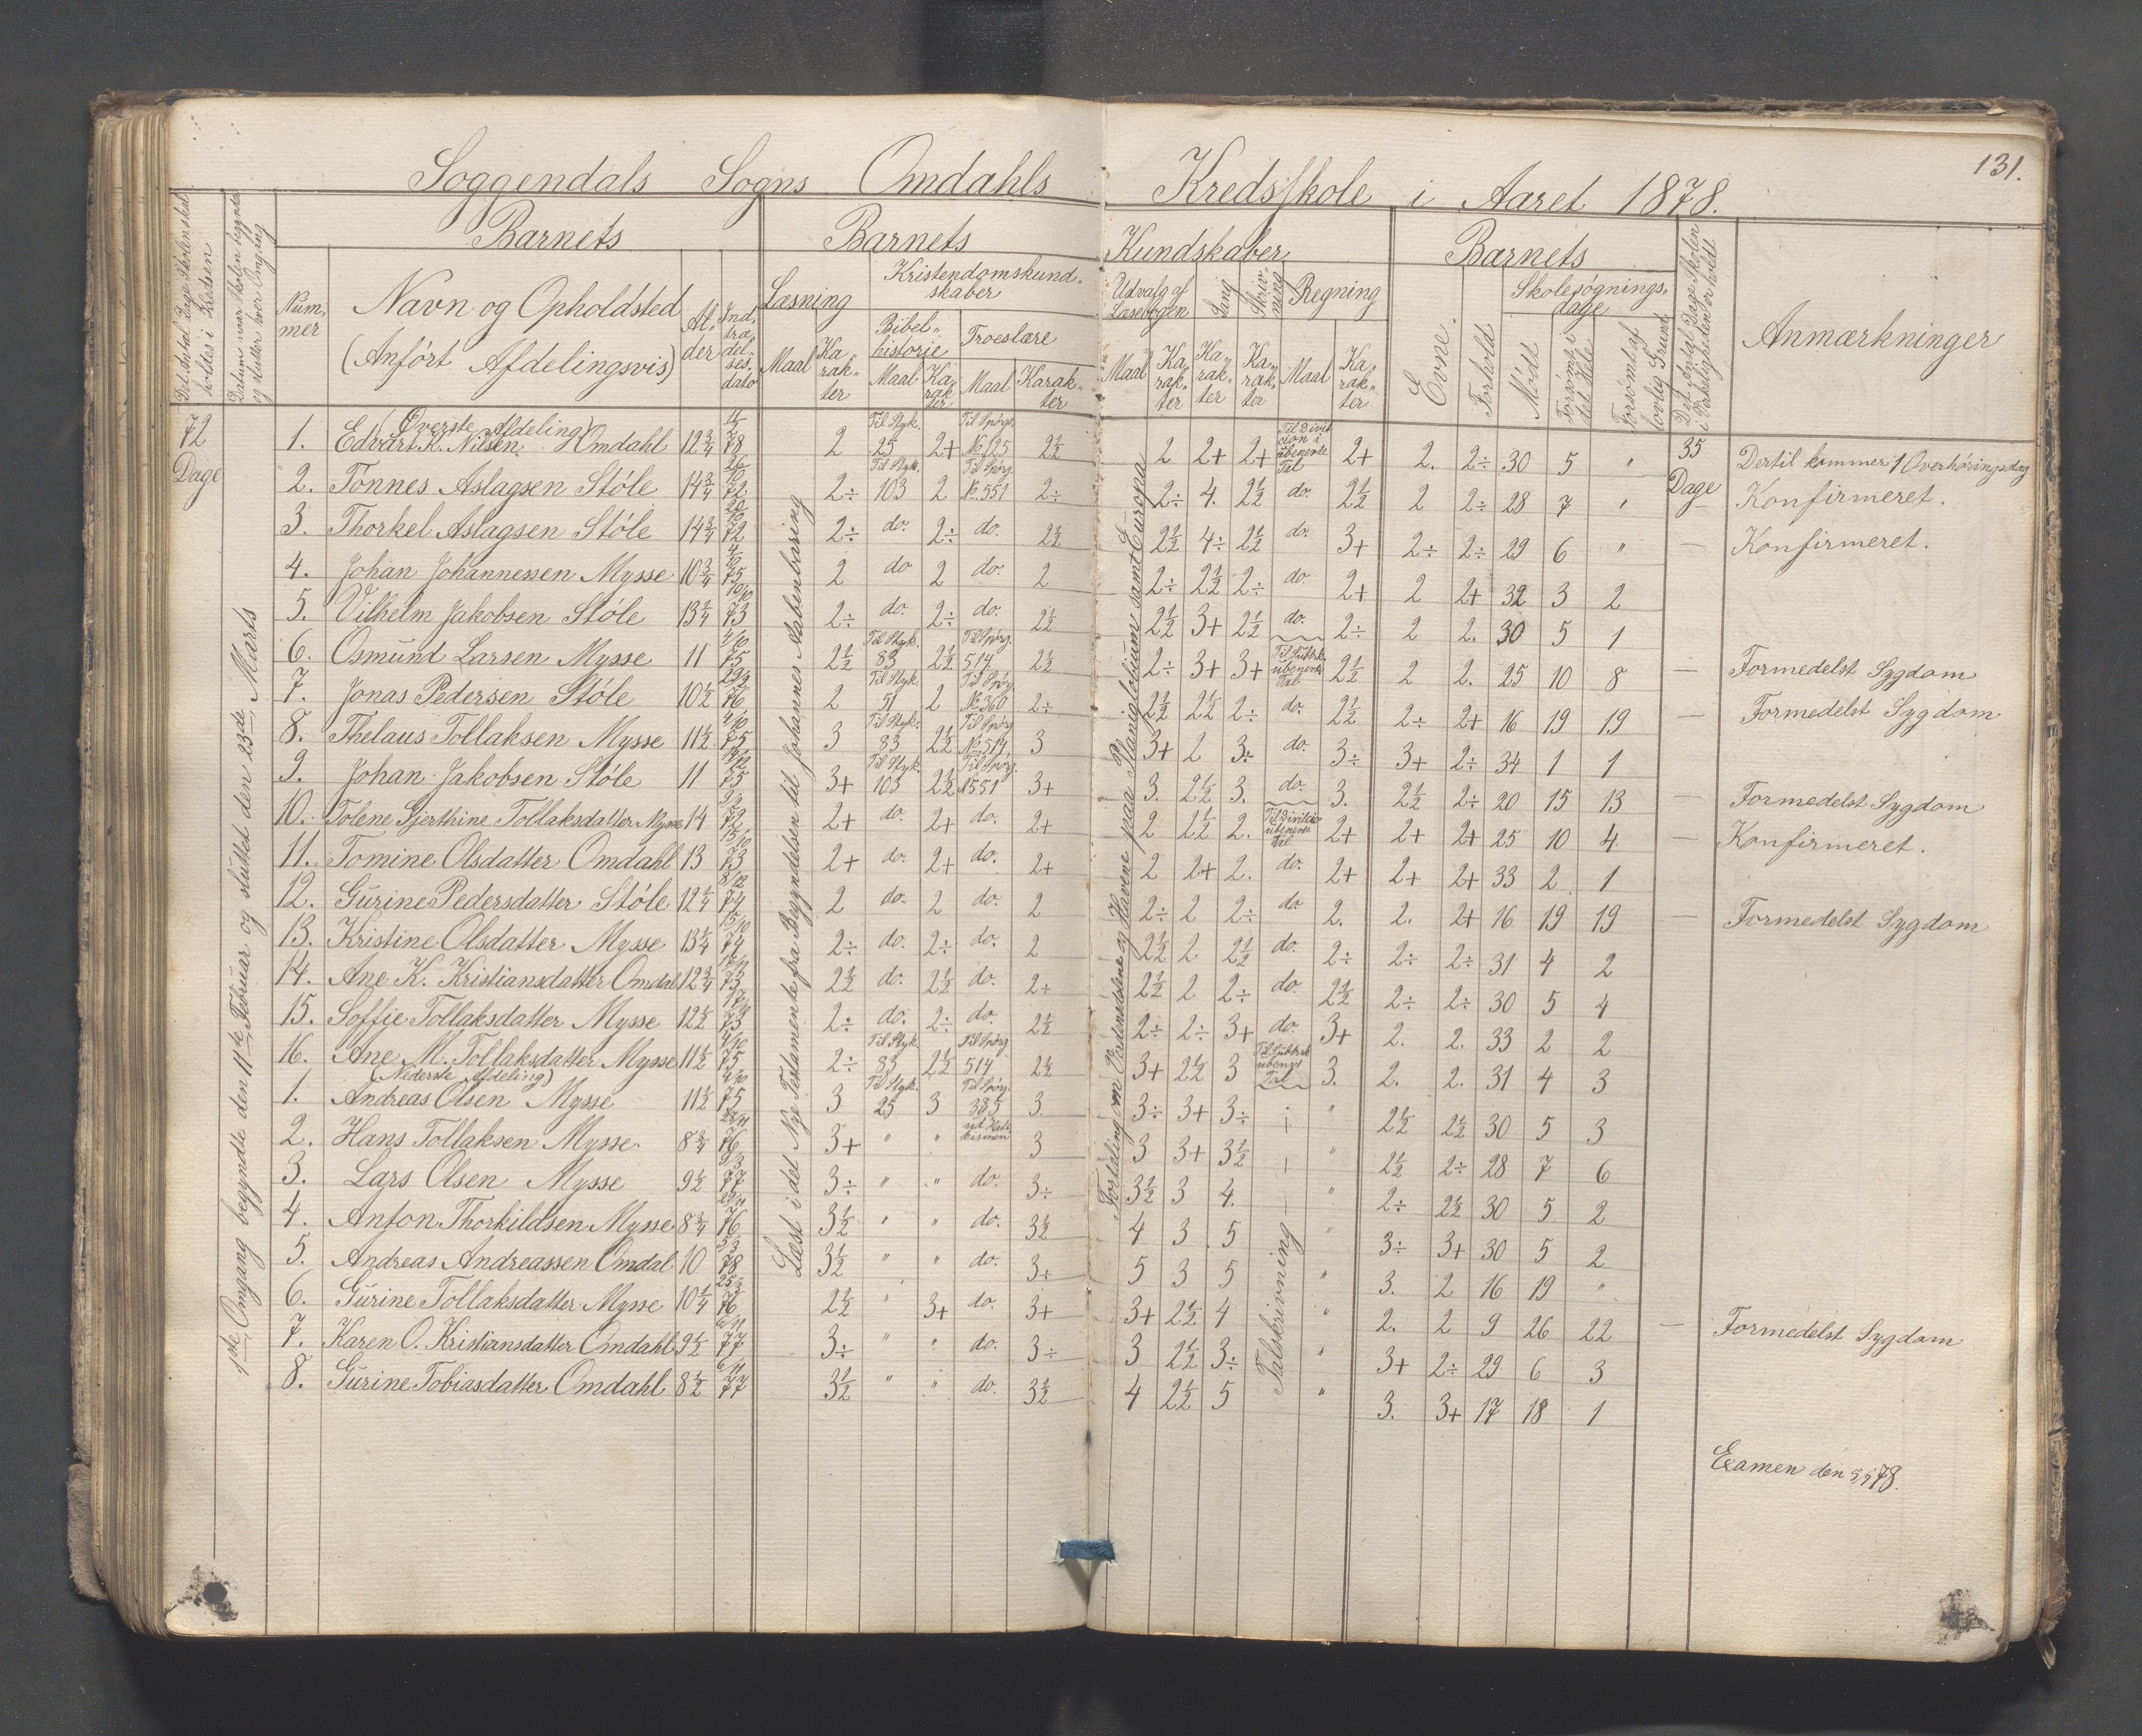 131.
Soggendals Sogns Omdahls Kredsskole i Aaret 1878.
Det Antal Dage Skolen skal holdes i Kredsen
Datum naar Skolen begynder og slutter hver Omgang
Barnets
Nummer
Navn og Opholdsted
(Anført Afdelingsvis)
Alder
Indtrædelsesdato
Barnets Kundskaber
Læsning
Maal
Karakter
Kristendomskundskaber
Bibelhistorie
Maal
Karakter
Troeslære
Maal
Karakter
Udvalg af Læsebogen
Maal
Karakter
Sang
Karakter
Skrivning
Karakter
Regning
Maal
Karakter
Barnets
Evne
Forhold
Skolesøgningsdage
Mødt
Forsømt i det Hele
Forsømt af lovlig Grund
Det Antal Dage Skolen i Virkeligheden er holdt
Anmærkninger
72 Dage
1ste Omgang begyndte den 11te Februar og sluttet den 23de Marts
Læst i det Nye Testamente fra Begyndelsen til Johannes Aabenbaring
Fortælling om Verdensdelene og Havene paa Planiglobium samt Europa
35 Dage
(Øverste Afdeling)
1. Edvart K. Nilsen Omdahl 12 3/4 4/2 78 2 Til Styk. 25 2+ Til Spørgs. No 125 2 1/2 2 2+ 2+ Til Division i ubenævnte Tal 2+ 2. 2÷ 30 5 " Dertil kommer 1 Overhøringsdag
2. Tønnes Aslagsen Støle 14 3/4 26/10 72 2÷ Til Styk. 103 2 Til Spørg. No 551 2÷ 2÷ 4. 2 1/2 do. 2 1/2 2 2÷ 28 7 " Konfirmeret.
3. Thorkel Aslagsen Støle 14 3/4 20/10 72 2÷ do. 2÷ do. 2 1/2 2 1/2 4÷ 2 1/2 do. 3+ 2÷ 2÷ 29 6 " — Konfirmeret.
4. Johan Johannessen Mysse 10 3/4 75 2 do 2 do. 2 2÷ 2 1/2 2÷ do. 2+ 2 2+ 32 3 2
5. Vilhelm Jakobsen Støle 13 1/4 10/10 73 2÷ do. 2÷ do. 2 1/2 2 1/2 3+ 2 1/2 do. 2÷ 2 2. 30 5 1
6. Osmund Larsen Mysse 11 4/10 75 2 1/2 Til Styk. 83 2 1/2 Til Spørg. 514 2 1/2 2÷ 3+ 3+ Til Subtrk. ubenævnte Tal 2 1/2 2 2. 25 10 8 — Formedelst Sygdom
7. Jonas Pedersen Støle 10 1/2 76 2 Til Styk. 51 2 Til Spørg. No 360 2÷ 2 1/2 2 1/2 2÷ do. 2 1/2 2÷ 2+ 16 19 19 — Formedelst Sygdom
8. Thelaus Tollaksen Mysse 11 1/2 4/10 75 3 Til Styk. 83 2 1/2 Til Spørg No 514 3 3+ 2 3÷ do. 3÷ 3+ 2÷ 34 1 1
9. Johan Jakobsen Støle 11 75 3+ Til Styk. 103 2 1/2 Til Spørg. No 551 3+ 3. 2 1/2 3. do. 3. 2 1/2 2÷ 20 15 13 — Formedelst Sygdom
10. Tolene Sjerthine Tollaksdatter Mysse 14 72 2+ do. 2+ do. 2+ 2 2 1/2 2. Til Division ubenævnte Tal 2+ 2+ 2+ 25 10 4. — Konfirmeret.
11. Tomine Olsdatter Omdahl 13 15/10 73 2+ do. 2+ do. 2+ 2 2+ 2. do. 2+ 2+ 2+ 33 2 1
12. Gurine Pedersdatter Støle 12 1/4 8/12 74 2 do. 2 do. 2 2÷ 2 2÷ do 2. 2. 2+ 16 19 19 — Formedelst Sygdom
13. Kristine Olsdatter Mysse 13 1/4 15/10 74 2÷ do. 2÷ do. 2 2 1/2 2 2 1/2 do. 2÷ 2÷ 2÷ 31 4 2
14. Ane K. Kristiansdatter Omdal 12 3/4 73 2 1/2 do. 2 1/2 do. 2÷ 2 1/2 2 2÷ do. 2 1/2 2÷ 2÷ 30 5 4
15. Soffie Tollaksdatter Mysse 12 1/2 73 2÷ do. 2÷ do. 2 1/2 2÷ 2÷ 3+ do. 3+ 2. 2. 33 2 2
16. Ane M. Tollaksdatter Mysse 11 1/2 4/10 75 2÷ Til Styk. 83 2 1/2 Til Spørg 514 2 1/2 3+ 2 1/2 3 Til Subtrk ubenævnt Tal 3. 2. 2. 31 4 3
(Nederste Afdeling)
1. Andreas Olsen Mysse 11 1/2 4/10 75 3 Til Styk. 25 3 Til Spørg. 385 3. 3÷ 3+ 3÷ " 2 1/2 2 1/2 30 5 3
2. Hans Tollaksen Mysse. 8 3/4 76 3+ " " 3 3 3+ 3 1/2 " 2 1/2 2÷ 28 7 6
3. Lars Olsen Mysse 9 1/2 77 3÷ " " do. 3÷ 3 1/2 3 4. " 2÷ 2 1/2 30 5 2
4. Anton Thorkildsen Mysse 8 3/4 76 3 1/2 " " do. 3 1/2 4 3 5 " 3÷ 3+ 30 5 2
5. Andreas Andreassen Omdal 10 78 3 1/2 " " do. 3÷ 5 3 5 " 3. 2 16 19 "
6. Gurine Tollaksdatter Mysse 10 1/4 76 2 1/2 " 3+ do. 3+ 3+ 2 1/2 4 " 2. 2 9 26 22 — Formedelst Sygdom
7. Karen O. Kristiansdatter Omdahl 9 1/2 77 3÷ " " do. 3÷ 3 2 1/2 3÷ " 3+ 2÷ 29 6 3
8. Gurine Tobiasdatter Omdahl 8 1/2 6/11 77 3 1/2 " " do. 3 1/2 4 2 1/2 5 " 3. 3+ 17 18 1
Talskrivning
Examen den 78.